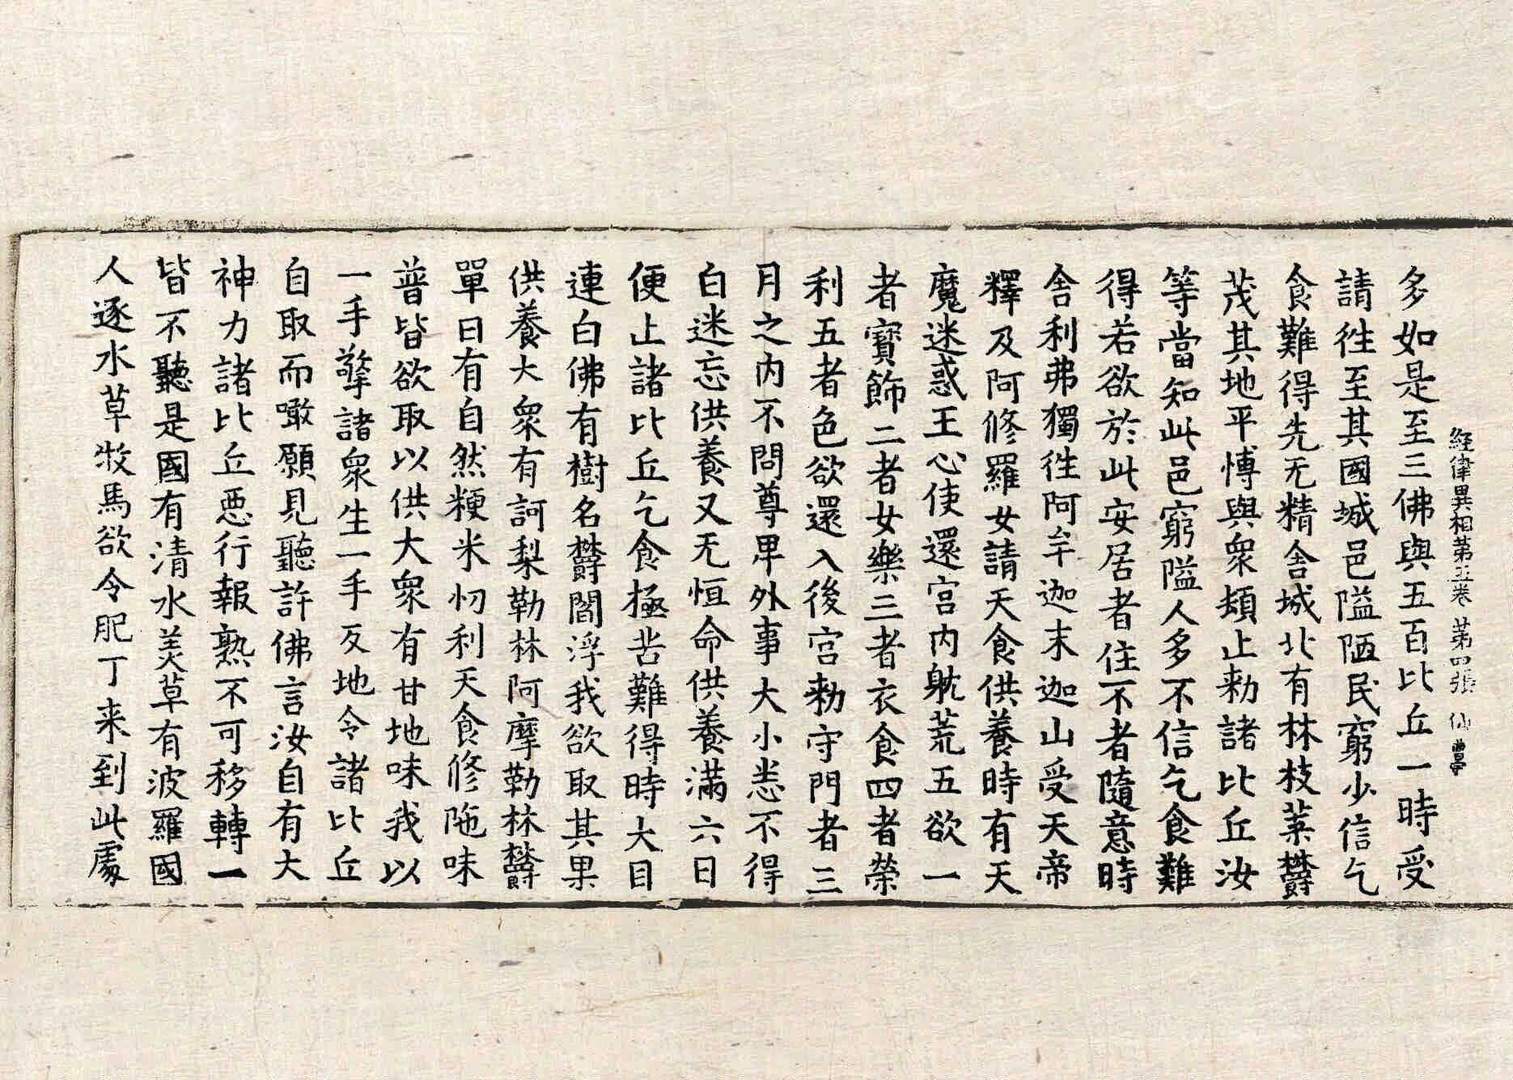 經律異相第五卷 第四張 仙
多如是至三佛與五百比丘一時受
請徃至其國城邑隘陋民窮少信乞
食難得先无精舍城北有林枝葉欝
茂其地平愽與衆頓止勑諸比丘汝
等當知此邑窮隘人多不信乞食難
得若欲於此安居者住不者隨意時
舍利弗獨徃阿牟迦末迦山受天帝
釋及阿修羅女請天食供養時有天
魔迷惑王心使還宫内躭荒五欲一
者寶飾二者女樂三者衣食四者榮
利五者色欲還入後宫勑守門者三
月之内不問尊卑外事大小悉不得
白迷忘供養又无恒命供養滿六日
便止諸比丘乞食極苦難得時大目
連白佛有樹名欝閻浮我欲取其果
供養大衆有訶梨勒林阿摩勒林欝
單曰有自然粳米忉利天食修陁味
普皆欲取以供大衆有甘地味我以
一手擎諸衆生一手反地令諸比丘
自取而噉願見聽許佛言汝自有大
神力諸比丘惡行報熟不可移轉一
皆不聽是國有清水美草有波羅國
人逐水草牧馬欲令肥丁来到此處